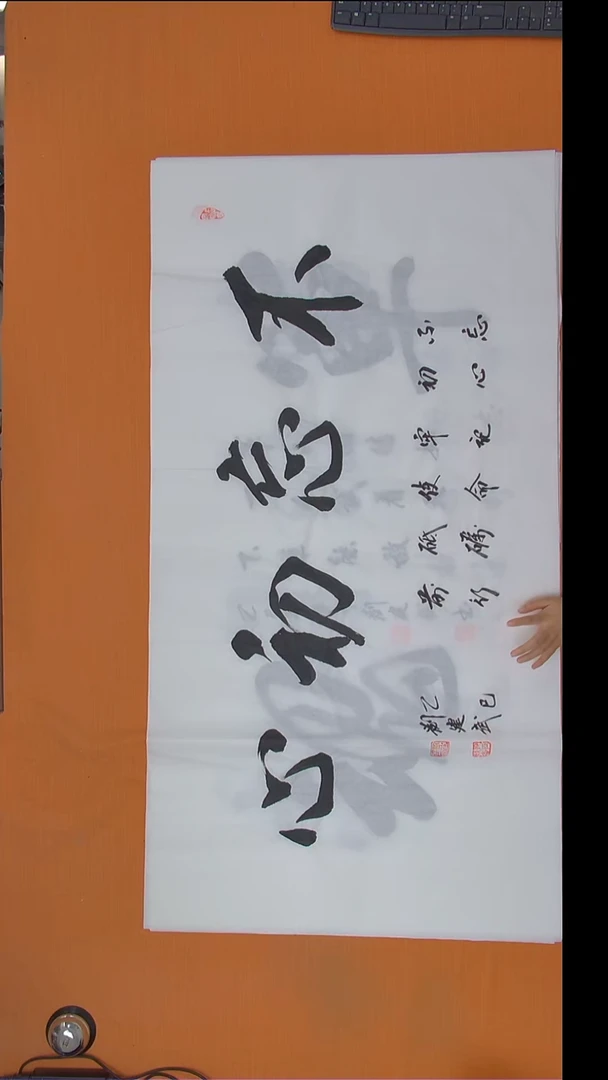 不忘初心
不忘
初心
牢记
使命
砥砺
前行
乙巳
刘建武